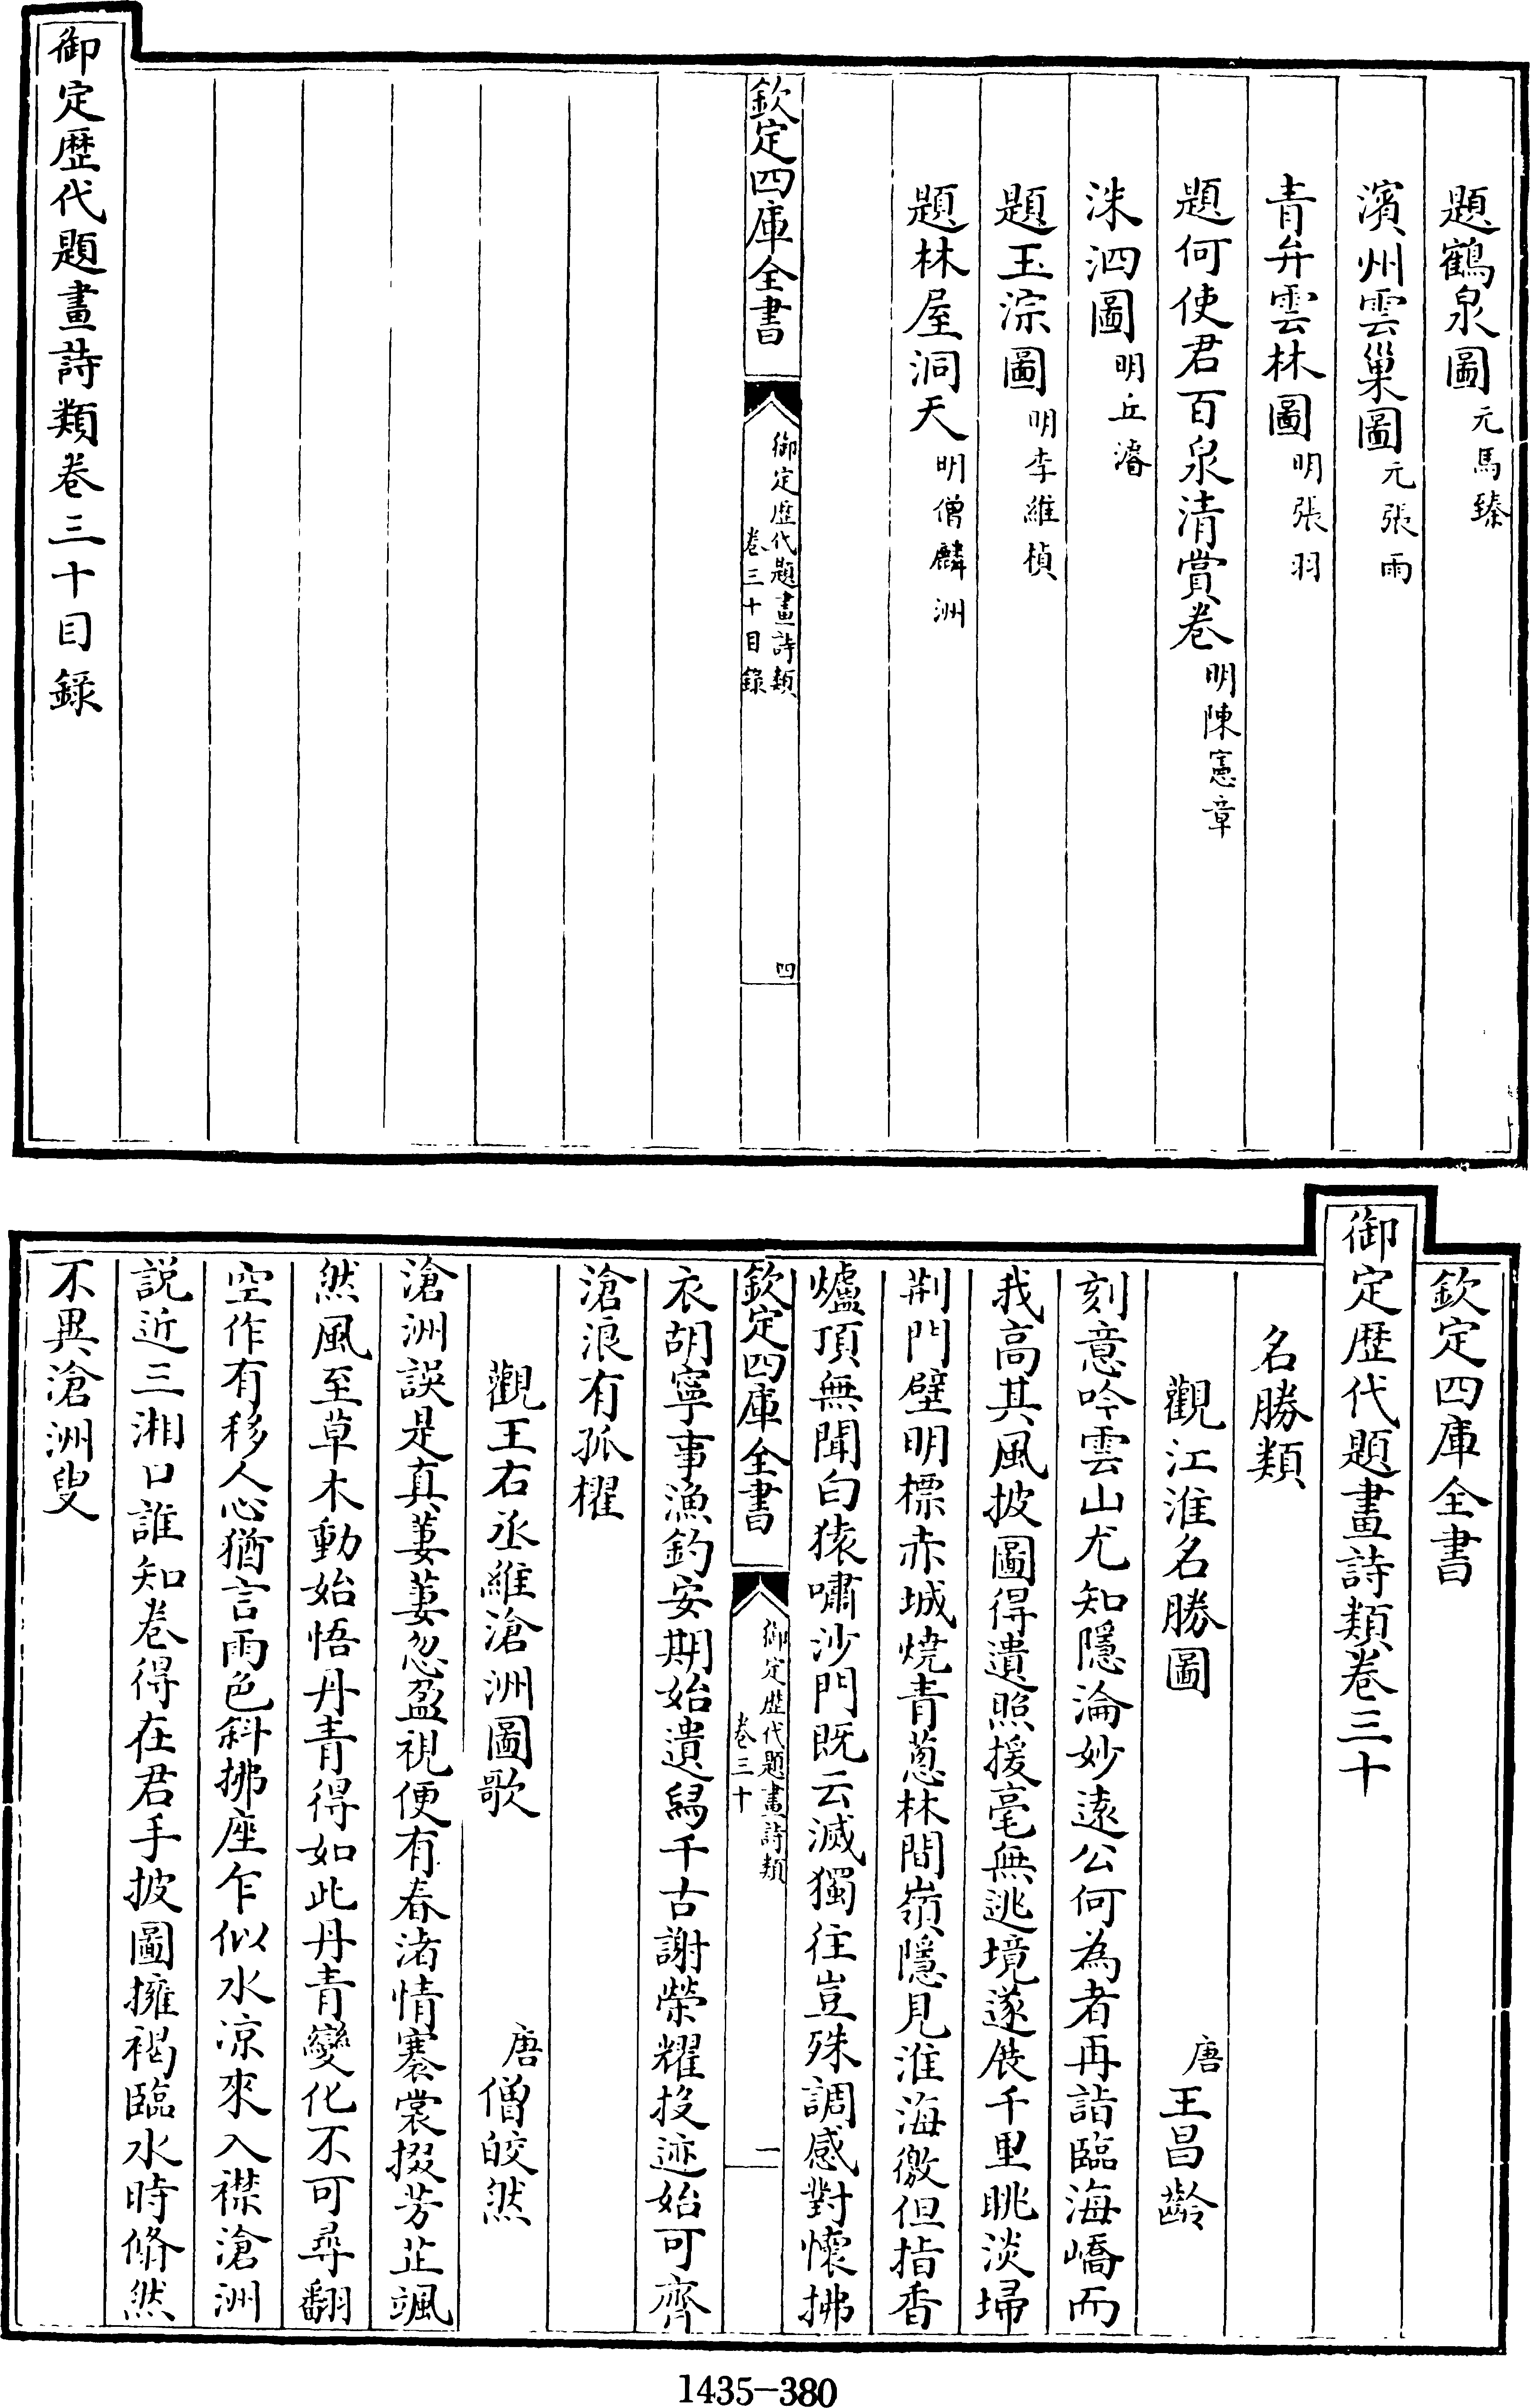 題鶴泉圖元馬臻
濱州雲巢圖元張雨
青弁雲林圖明張羽
題何使君百泉清賞卷明陳憲章
洙泗圖明丘濬
題玉淙圖明李維楨
題林屋洞天明僧麟洲
欽定四庫全書
御定歷代題畫詩類
卷三十目錄
四
御定歷代題畫詩類卷三十目錄
欽定四庫全書
御定歷代題畫詩類卷三十
名勝類
觀江淮名勝圖 唐王昌齡
刻意吟雲山尤知隱淪妙遠公何為者再詣臨海嶠而
我高其風披圖得遺照援毫無逃境遂展千里眺淡埽
荆門壁明標赤城燒青蔥林間嶺隱見淮海徼但指香
爐頂無聞白猿嘯沙門既云滅獨往豈殊調感對懷拂
欽定四庫全書
御定歷代題畫詩類
卷三十
一
衣胡寧事漁釣安期始遺舄千古謝榮耀投迹始可齊
滄浪有孤櫂
觀王右丞維滄洲圖歌 唐僧皎然
滄洲誤是真萋萋忽盈視便有春渚情褰裳掇芳芷颯
然風至草木動始悟丹青得如此丹青變化不可尋翻
空作有移人心猶言雨色斜拂座乍似水凉來入襟滄洲
說近三湘口誰知卷得在君手披圖擁褐臨水時翛然
不異滄洲叟
1435-380